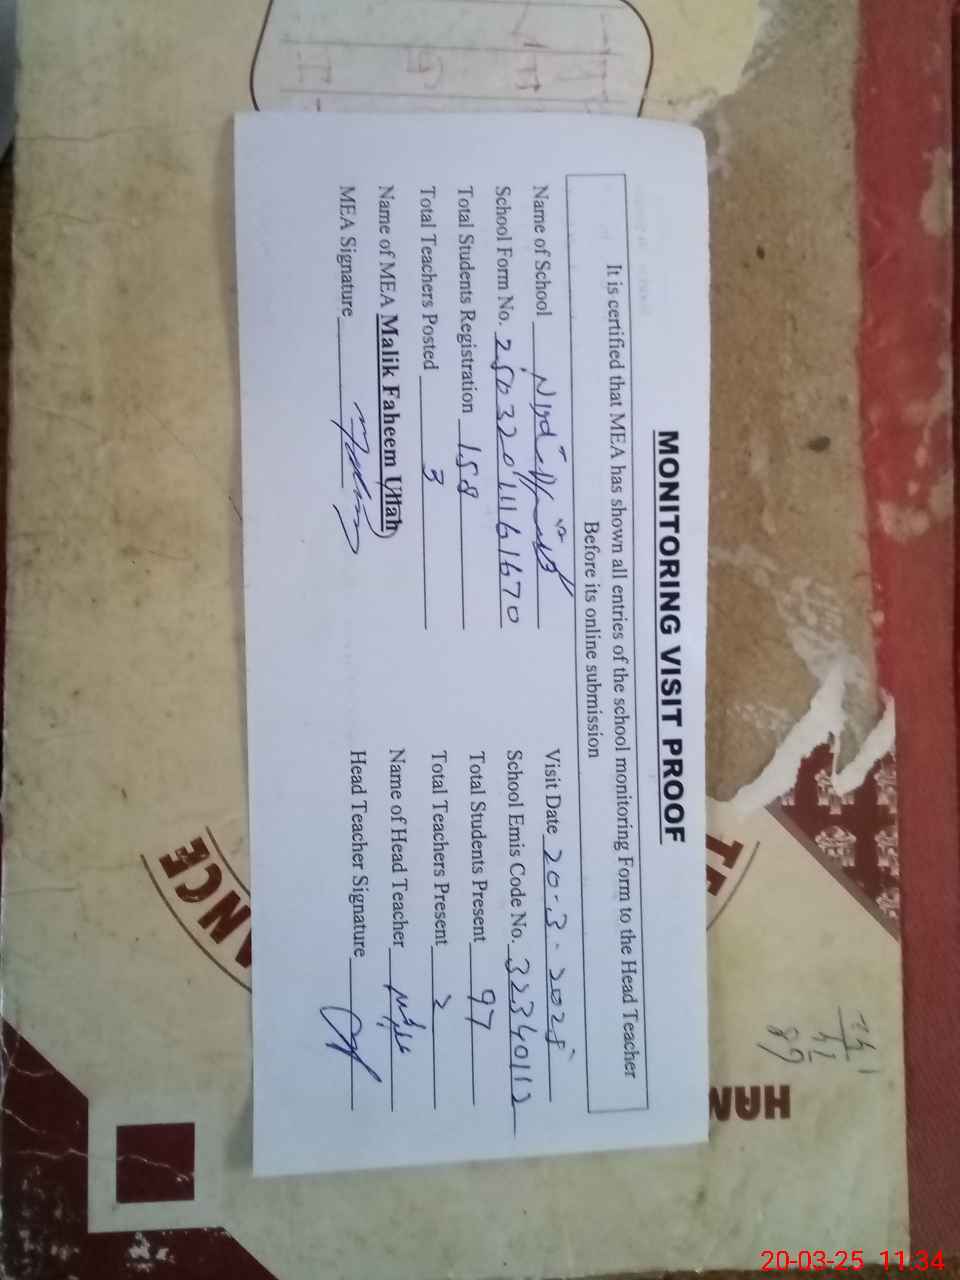 MONITORING VISIT PROOF
It is certified that MEA has shown all entries of the school monitoring Form to the Head Teacher
Before its online submission
Name of School
Visit Date 20-3-2025
School Form No. 250320111161670
School Emis Code No. 32340112
Total Students Registration 158
Total Students Present 97
Total Teachers Posted 3
Total Teachers Present 2
Name of MEA Malik Faheem Ullah
Name of Head Teacher
MEA Signature
Head Teacher Signature
ANCE
HAN
20-03-25 11:34